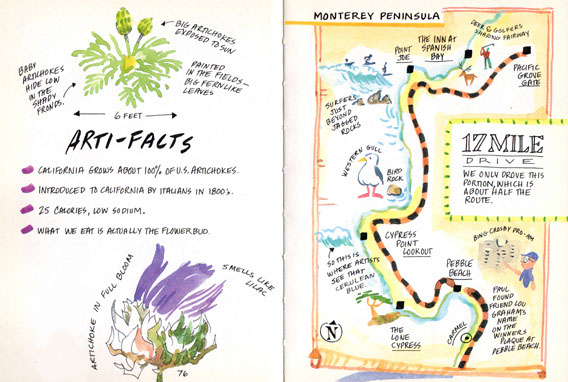 BIG ARTICHOKES
EXPOSED TO SUN
PAINTED
IN THE FIELDS–
BIG FERNLIKE
LEAVES
BABY
ARTICHOKES
HIDE LOW
IN THE
SHADY
FRONDS.
6 FEET
ARTI-FACTS
CALIFORNIA GROWS ABOUT 100% OF U.S. ARTICHOKES.
INTRODUCED TO CALIFORNIA BY ITALIANS IN 1800's.
25 CALORIES, LOW SODIUM.
WHAT WE EAT IS ACTUALLY THE FLOWERBUD.
ARTICHOKE IN FULL BLOOM
SMELLS LIKE
LILAC
76
MONTEREY PENINSULA
POINT
JOE
THE INN AT
SPANISH
BAY
DEER & GOLFERS
SHARING FAIRWAY
PACIFIC
GROVE
GATE
SURFERS
JUST
BEYOND
JAGGED
ROCKS
WESTERN GULL
BIRD
ROCK
17 MILE
DRIVE
WE ONLY DROVE THIS
PORTION, WHICH IS
ABOUT HALF THE
ROUTE.
CYPRESS
POINT
LOOKOUT
SO THIS IS
WHERE ARTISTS
SEE THAT
CERULEAN
BLUE.
BING CROSBY PRO-AM
PEBBLE
BEACH
PAUL
FOUND
FRIEND LOU
GRAHAM'S
NAME
ON THE
WINNERS
PLAQUE AT
PEBBLE BEACH.
THE
LONE
CYPRESS
CARMEL
N